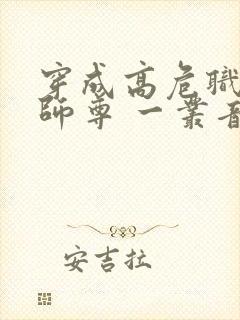 穿成高危職
師尊 一叢音
安吉拉